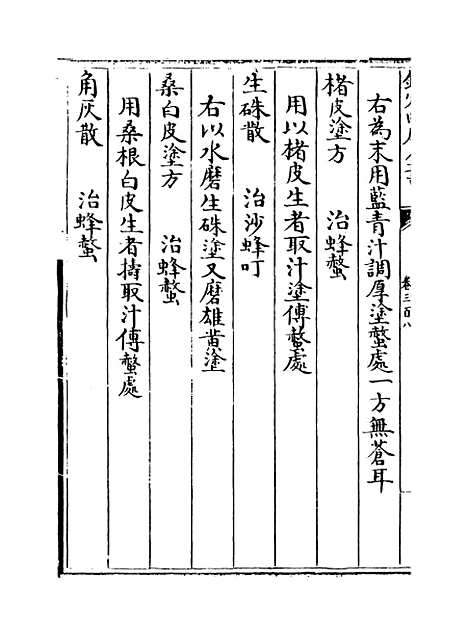 卷三百八
右為末用藍青汁調厚塗螫處一方無蒼耳
楮皮塗方 治蜂螫
用以楮皮生者取汁塗傅螫處
生硃散 治沙蜂叮
右以水磨生硃塗又磨雄黄塗
桑白皮塗方 治蜂螫
用桑根白皮生者擣取汁傅螫處
角灰散 治蜂螫